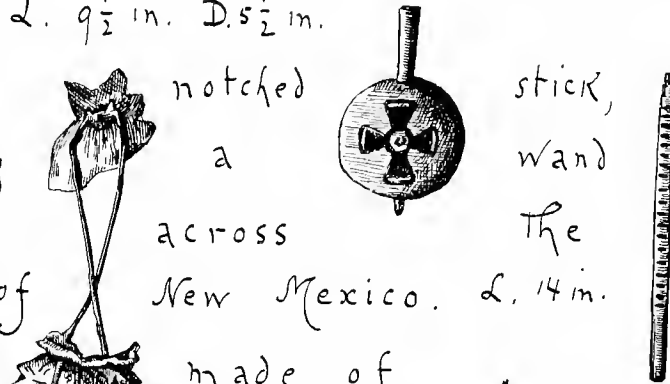 L. 9½ in. D. 5½ in.
notched stick,
a wand
across The
of New Mexico. L. 14 in.
made of